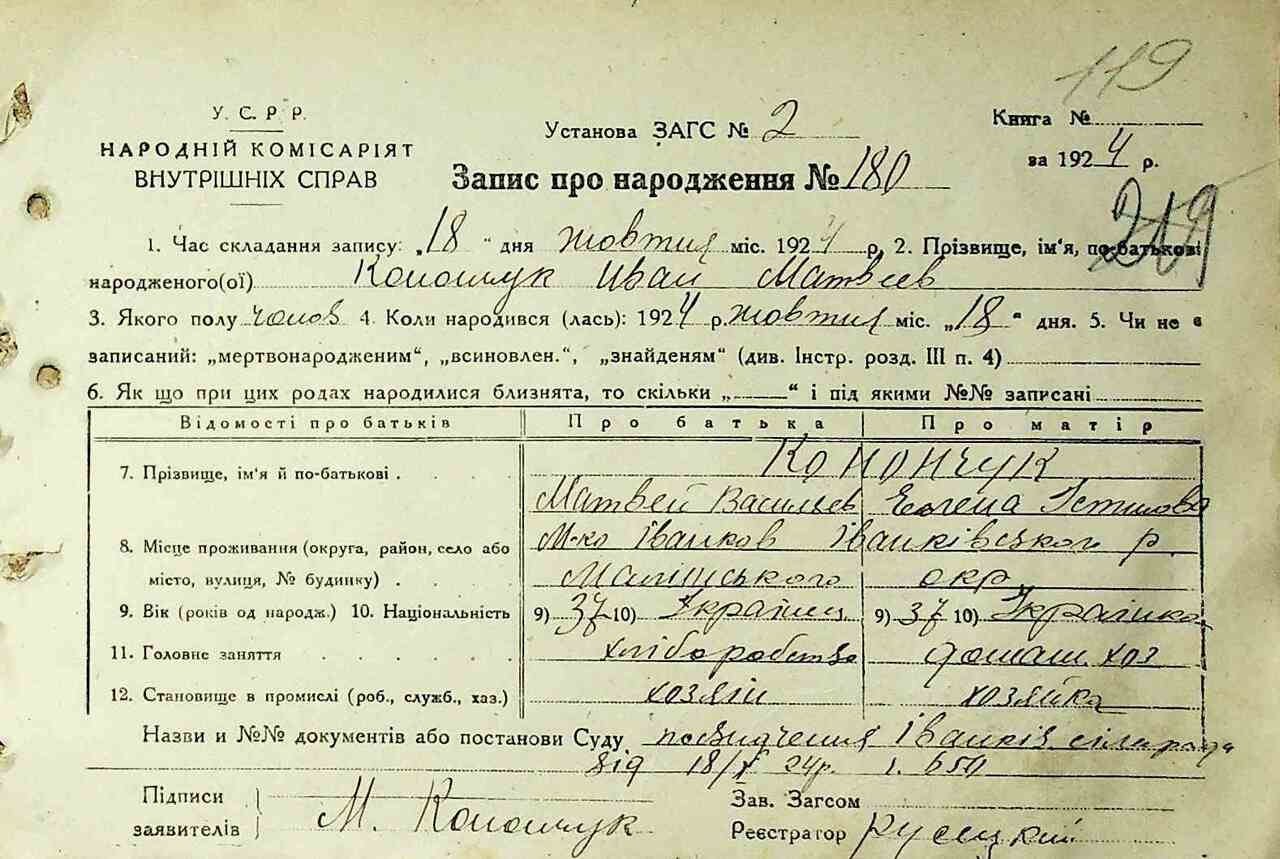 119
У. С. Р. Р.
НАРОДНІЙ КОМІСАРІЯТ
ВНУТРІШНІХ СПРАВ
Установа ЗАГС № 2
Книга №
за 1924 р.
Запис про народження № 180
219
1. Час складання запису: „18" дня жовтня міс. 1924 р. 2. Прізвище, ім'я, по-батькові
народженого(ої) Конончук Иван Матвеев
3. Якого полу чолов 4. Коли народився (лась): 1924 р. жовтня міс. „18" дня. 5. Чи не є
записаний: „мертвонародженим", „всиновлен.", „знайденям" (див. Інстр. розд. III п. 4)
6. Як що при цих родах народилися близнята, то скільки „ " і під якими №№ записані
Відомості про батьків Про батька Про матір
7. Прізвище, ім'я й по-батькові . Конончук
Матвей Васильев Еелена Устинова
8. Місце проживання (округа, район, село або М-ко Іванков Іванківського р.
місто, вулиця, № будинку) . Малинського окр
9. Вік (років од народж.) 10. Національність 9) 37 10) Україн. 9) 37 10) Українка
11. Головне заняття хліборобство домаш. хоз
12. Становище в промислі (роб., служб., хаз.) хозяін хозяйка
Назви и №№ документів або постанови Суду посвидчення Іванків сільрада
від 18/X 24р. 650
Підписи
заявителів М. Конончук
Зав. Загсом
Реєстратор Русецкий